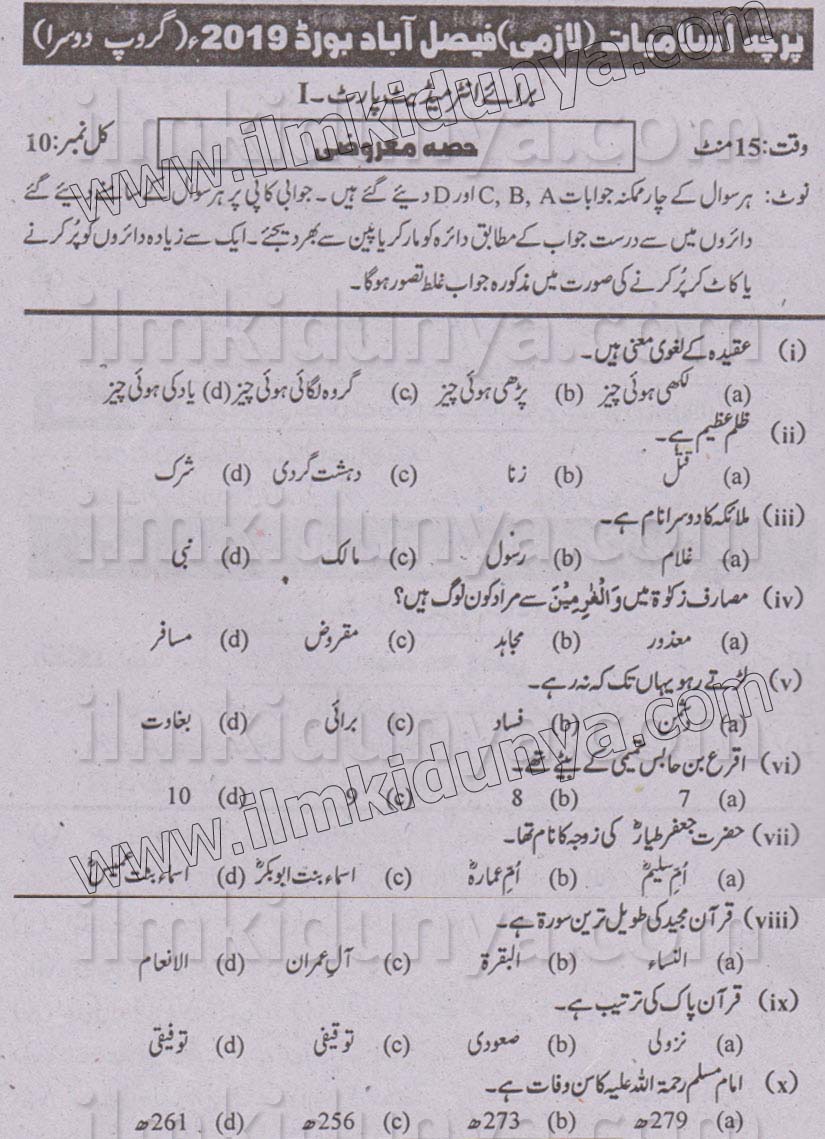 پرچہ اسلامیات (لازمی) فیصل آباد بورڈ 2019ء (گروپ دوسرا)
برائے انٹرمیڈیٹ پارٹ - I
وقت: 15 منٹ حصہ معروضی کل نمبر: 10
نوٹ: ہر سوال کے چار ممکنہ جوابات C, B, A اور D دیئے گئے ہیں۔ جوابی کاپی پر ہر سوال کے سامنے دیئے گئے
دائروں میں سے درست جواب کے مطابق دائرہ کو مارکر یا پین سے بھر دیجئے۔ ایک سے زیادہ دائروں کو پُر کرنے
یا کاٹ کر پُر کرنے کی صورت میں مذکورہ جواب غلط تصور ہوگا۔
(i) عقیدہ کے لغوی معنی ہیں۔
(a) لکھی ہوئی چیز (b) پڑھی ہوئی چیز (c) گروہ لگائی ہوئی چیز (d) یاد کی ہوئی چیز
(ii) ظلم عظیم ہے۔
(a) قتل (b) زنا (c) دہشت گردی (d) شرک
(iii) ملائکہ کا دوسرا نام ہے۔
(a) غلام (b) رسول (c) مالک (d) نبی
(iv) مصارف زکوٰۃ میں وَالْغٰرِمِیْنَ سے مراد کون لوگ ہیں؟
(a) معذور (b) مجاہد (c) مقروض (d) مسافر
(v) لڑتے رہو یہاں تک کہ نہ رہے۔
(a) (b) فساد (c) برائی (d) بغاوت
(vi) اقرع بن حابس تمیمی کے بیٹے تھے۔
(a) 7 (b) 8 (c) 9 (d) 10
(vii) حضرت جعفر طیارؓ کی زوجہ کا نام تھا۔
(a) اُم سلیمؓ (b) اُمّ عمارہؓ (c) اسماء بنت ابوبکرؓ (d) اسماء بنت عمیسؓ
(viii) قرآن مجید کی طویل ترین سورۃ ہے۔
(a) النساء (b) البقرۃ (c) آل عمران (d) الانعام
(ix) قرآن پاک کی ترتیب ہے۔
(a) نزولی (b) صعودی (c) توقیفی (d) توفیقی
(x) امام مسلم رحمۃ اللہ علیہ کا سن وفات ہے۔
(a) 279ھ (b) 273ھ (c) 256ھ (d) 261ھ
www.ilmkidunya.com
www.ilmkidunya.com
ilmkidunya.com
ilmkidunya.com
ilmkidunya.com
ilmkidunya.com
ilmkidunya.com
ilmkidunya.com